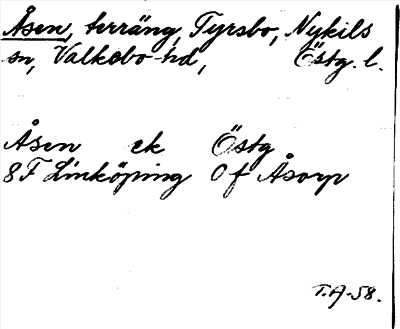 Åsen, terräng, Tyrsbo, Nykils
sn, Valkebo hd, Östg. l.
Åsen ek Östg
8F Linköping Of Åsorp
T.A. 58.